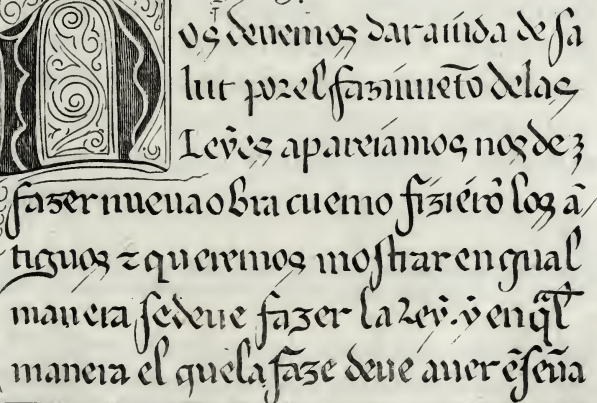 Nos deuemos dar aiuda de sa
lut por el fazimiẽto delas
Leẏes apareiamos nos de
fazer nueua obra cuemo fizierõ los ã
tiguos ⁊ queremos mostrar en qual
manera se deue fazer la Leẏ. ẏ en q̃l
manera el quela faze deue auer ẽseña